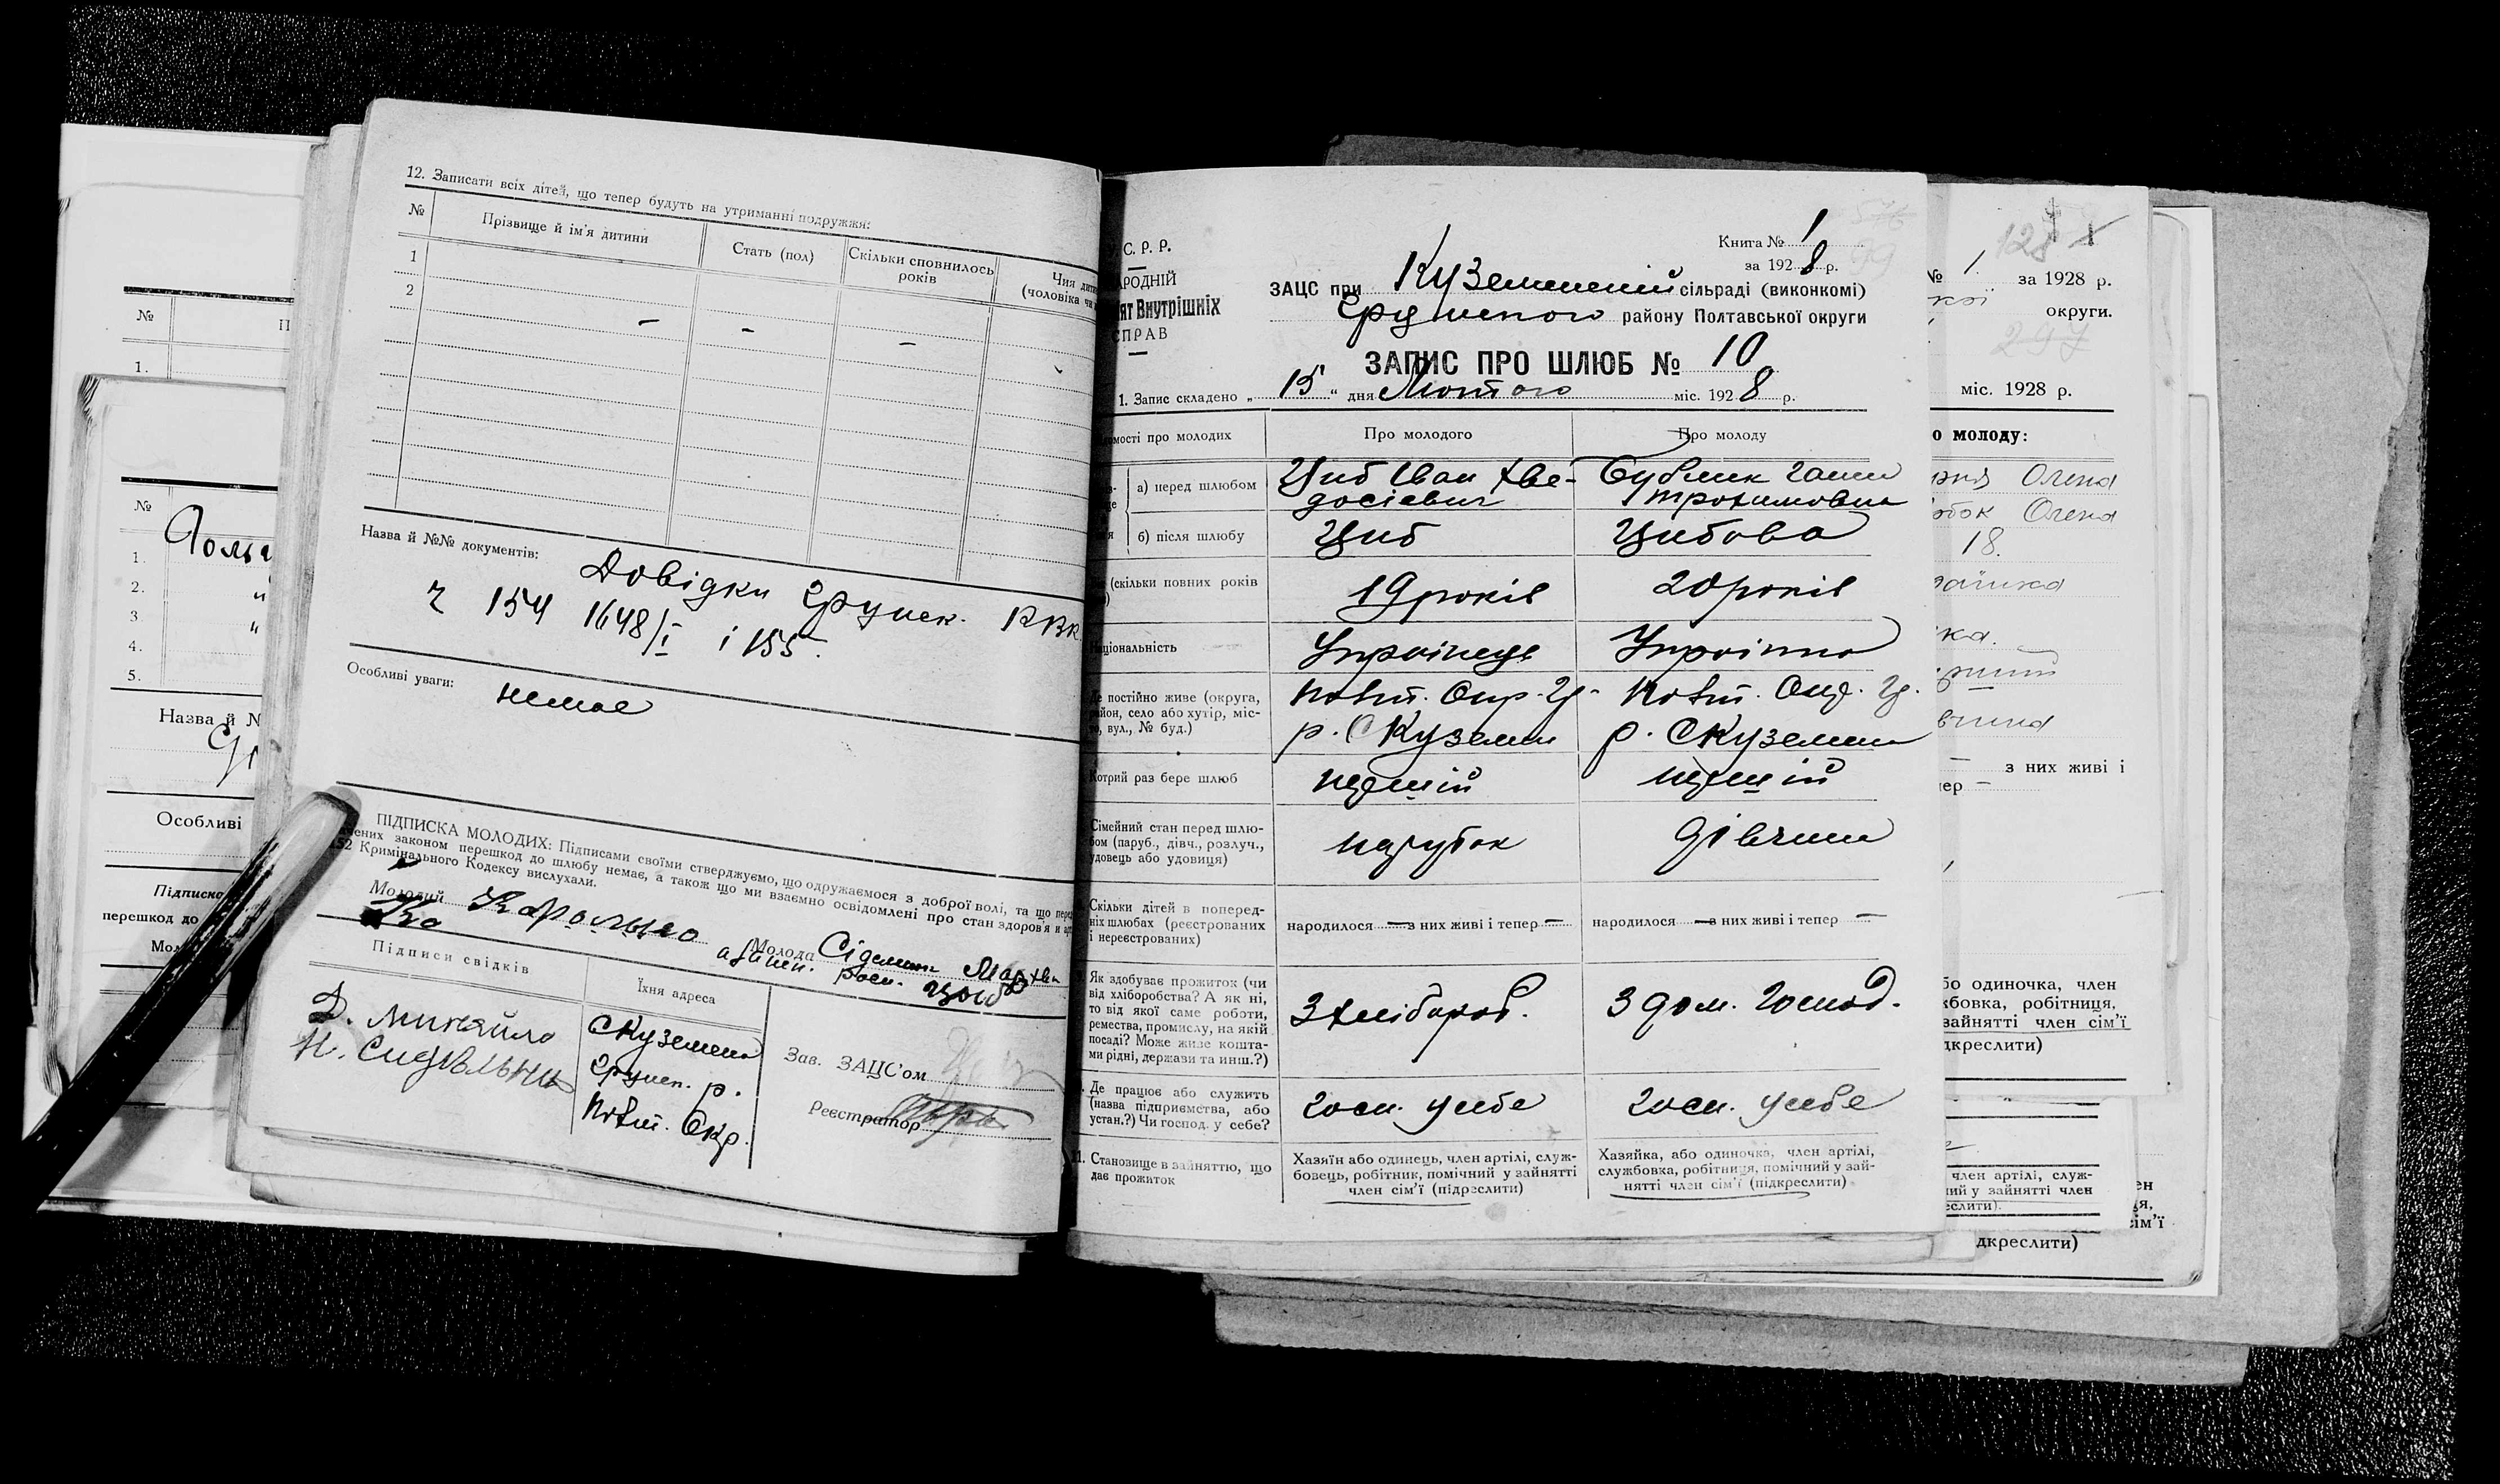 12. Записати всіх дітей, що тепер будуть на утриманні подружжя:
№
Прізвище й ім'я дитини
Стать (пол)
Скільки сповнилось
років
Чия дити
(чоловіка чи
1
2
Назва й №№ документів:
Довідки Грунск. РВК
ч 154 1648/I і 155.
Особливі уваги:
немає
ПІДПИСКА МОЛОДИХ: Підписами своїми стверджуємо, що одружаємося з доброї волі, та що
чених законом перешкод до шлюбу немає, а також що ми взаємно освідомлені про стан здоров'я и
152 Кримінального Кодексу вислухали.
Молодий
Молода
Підписи свідків
Їхня адреса
Д. Миняйло
С Куземен
Грунск. р.
Полт. Окр.
Зав. ЗАЦС'ом
Реєстратор
С. Р. Р.
АРОДНІЙ
ЯТ ВНУТРІШНІХ
СПРАВ
Книга № 1
за 1928 р.
ЗАЦС при Куземенській сільраді (виконкомі)
Грунського району Полтавської округи
ЗАПИС ПРО ШЛЮБ № 10
1. Запис складено „ 15 “ дня Лютого міс. 1928 р.
мості про молодих
Про молодого
Про молоду
а) перед шлюбом
Циб Іван Хве-
досієвич
Бублик Ганна
Трохимовна
б) після шлюбу
Циб
Цибова
(скільки повних років
19 років
20 років
Національність
Українець
Українка
Де постійно живе (округа,
район, село або хутір, міс-
то, вул., № буд.)
Полт. Окр. Гр.
р. С Куземен
Полт. Окр. Гр.
р. С Куземен
Котрий раз бере шлюб
перший
перший
Сімейний стан перед шлю-
бом (паруб., дівч., розлуч.,
удовець або удовиця)
парубок
дівчина
Скільки дітей в поперед-
ніх шлюбах (реєстрованих
і нереєстрованих)
народилося — з них живі і тепер —
народилося — з них живі і тепер —
Як здобуває прожиток (чи
від хліборобства? А як ні,
то від якої саме роботи,
ремества, промислу, на якій
посаді? Може живе кошта-
ми рідні, держави та инш.?)
З хлібороб.
З дом. господ.
Де працює або служить
(назва підприємства, або
устан.?) Чи господ. у себе?
госп. у себе
госп. у себе
11. Становище в зайняттю, що
дає прожиток
Хазяїн або одинець, член артілі, служ-
бовець, робітник, помічний у зайнятті
член сім'ї (підреслити)
Хазяйка, або одиночка, член артілі,
службовка, робітниця, помічний у зай-
нятті член сім'ї (підкреслити)
№
1.
№
1.
2.
3.
4.
5.
Назва й №
Особливі
Підписка
перешкод до
№ 1. за 1928 р.
округи.
297
міс. 1928 р.
о молоду:
Олена
Олена
18.
з них живі і
ер —
бо одиночка, член
жбовка, робітниця,
зайнятті член сім'ї
дкреслити)
член артілі, служ-
ний у зайнятті член
еслити).
сім'ї
дкреслити)